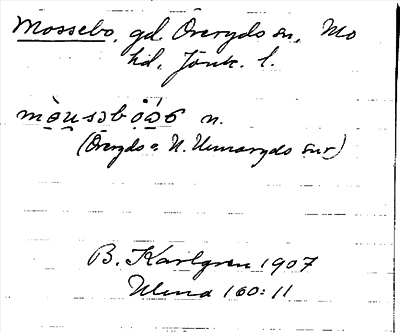 Mossebo, gd. Öreryds sn, Mo
hd, Jönk. l.
n.
(Öreryds o. N. Unnaryds snr)
B. Karlgren 1907
Ulma 160:11